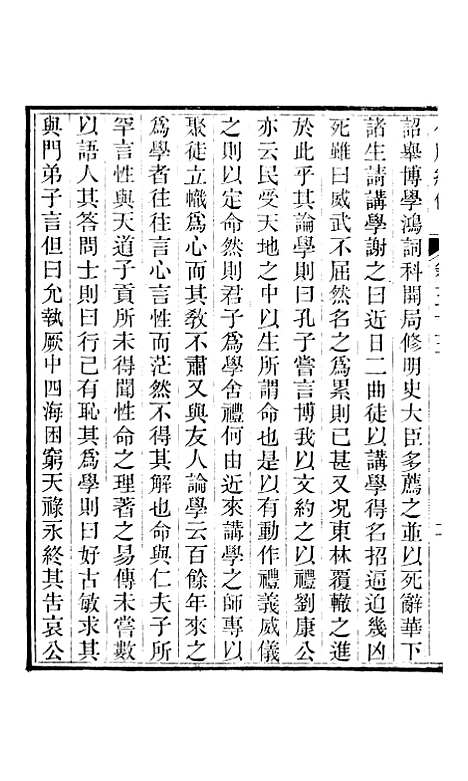 詔舉博學鴻詞科開局修明史大臣多薦之並以死辭華下
諸生請講學謝之曰近日二曲徒以講學得名招逼迫幾凶
死雖曰威武不屈然名之爲累則已甚又况東林覆轍之進
於此乎其論學則曰孔子嘗言博我以文約之以禮劉康公
亦云民受天地之中以生所謂命也是以有動作禮義威儀
之則以定命然則君子爲學舍禮何由近來講學之師專以
聚徒立幟爲心而其教不肅又與友人論學云百餘年來之
爲學者往往言心言性而茫然不得其解也命與仁夫子所
罕言性與天道子貢所未得聞性命之理著之易傳未嘗數
以語人其答問士則曰行己有恥其爲學則曰好古敏求其
與門弟子言但曰允執厥中四海困窮天祿永終其告哀公